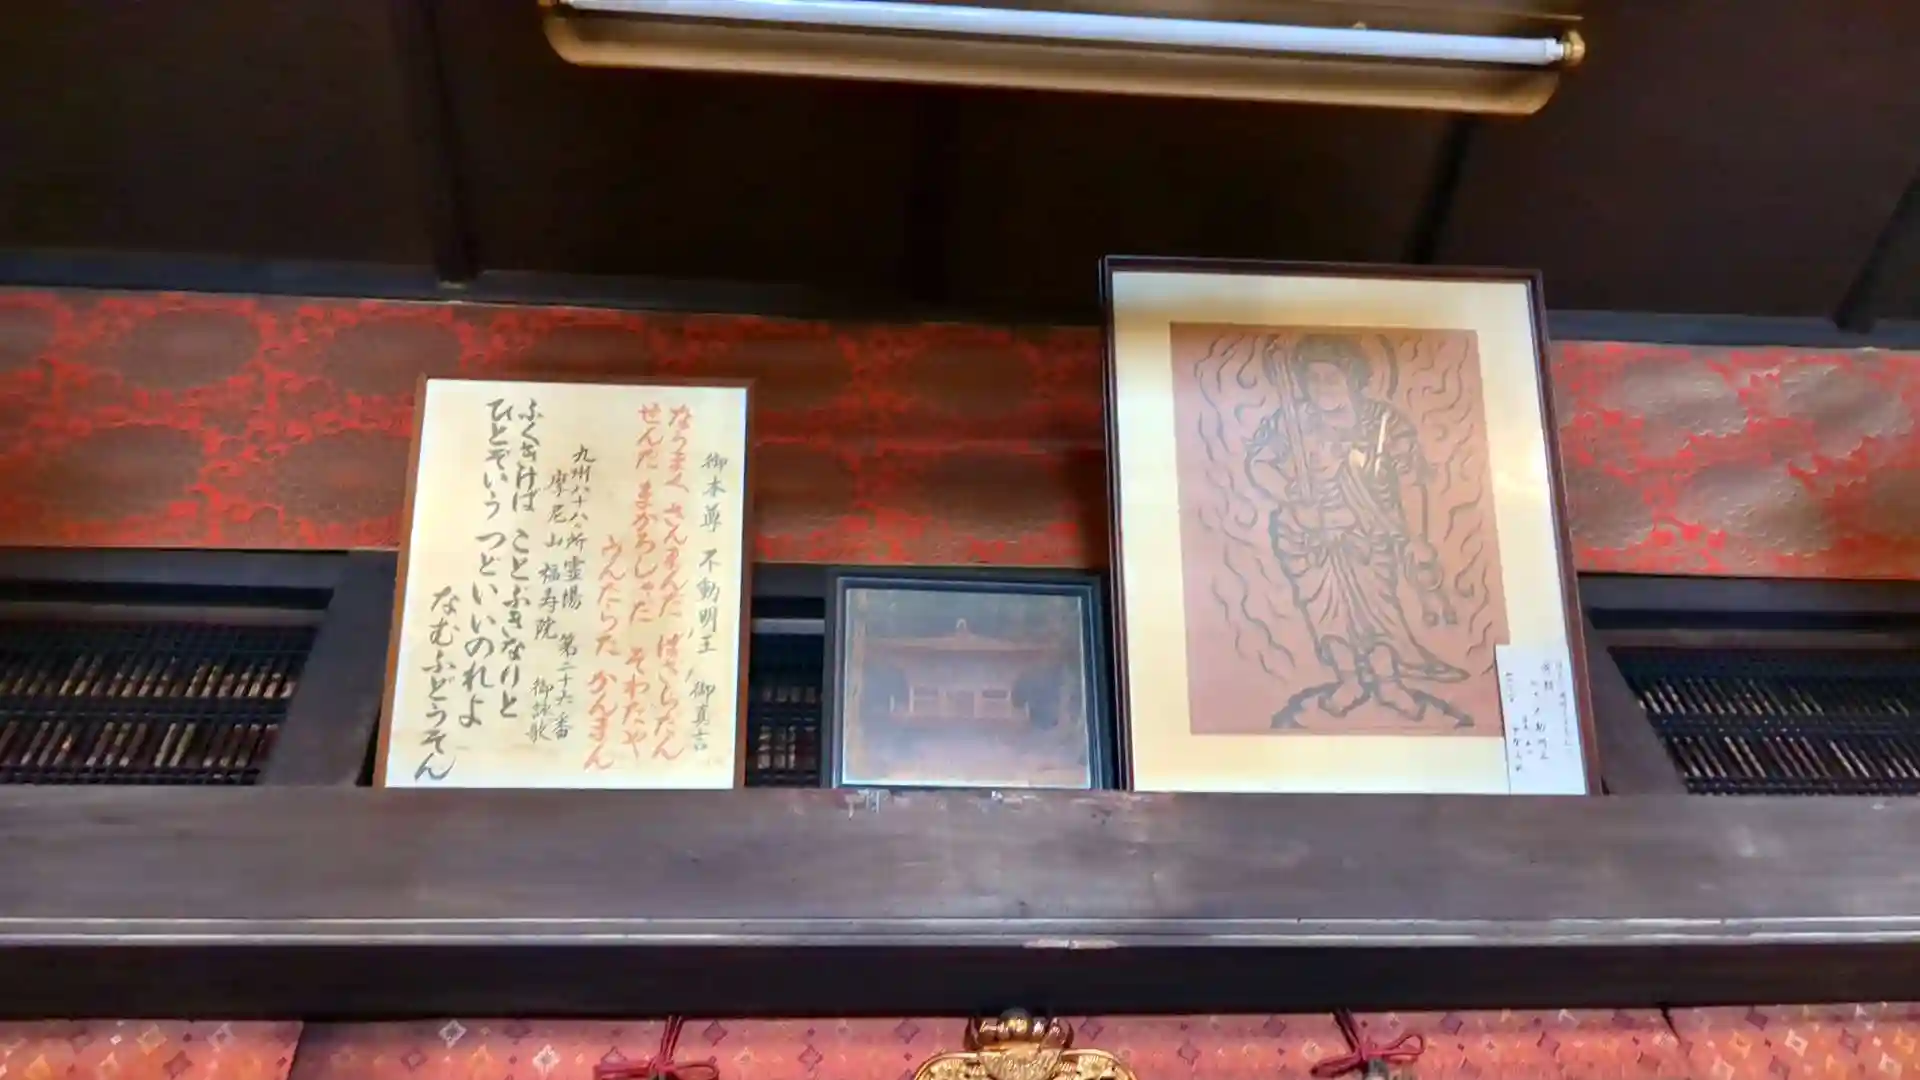 御本尊 不動明王 御真言
なうまく さんまんだ ばさらだん
せんだ まかろしゃだ そわたや
うんたらた かんまん
九州八十八ヶ所霊場 第二十六番
摩尼山 福寿院 御詠歌
ふくさけば ことぶきなりと
ひとぞいう つどいいのれよ
なむふどうそん